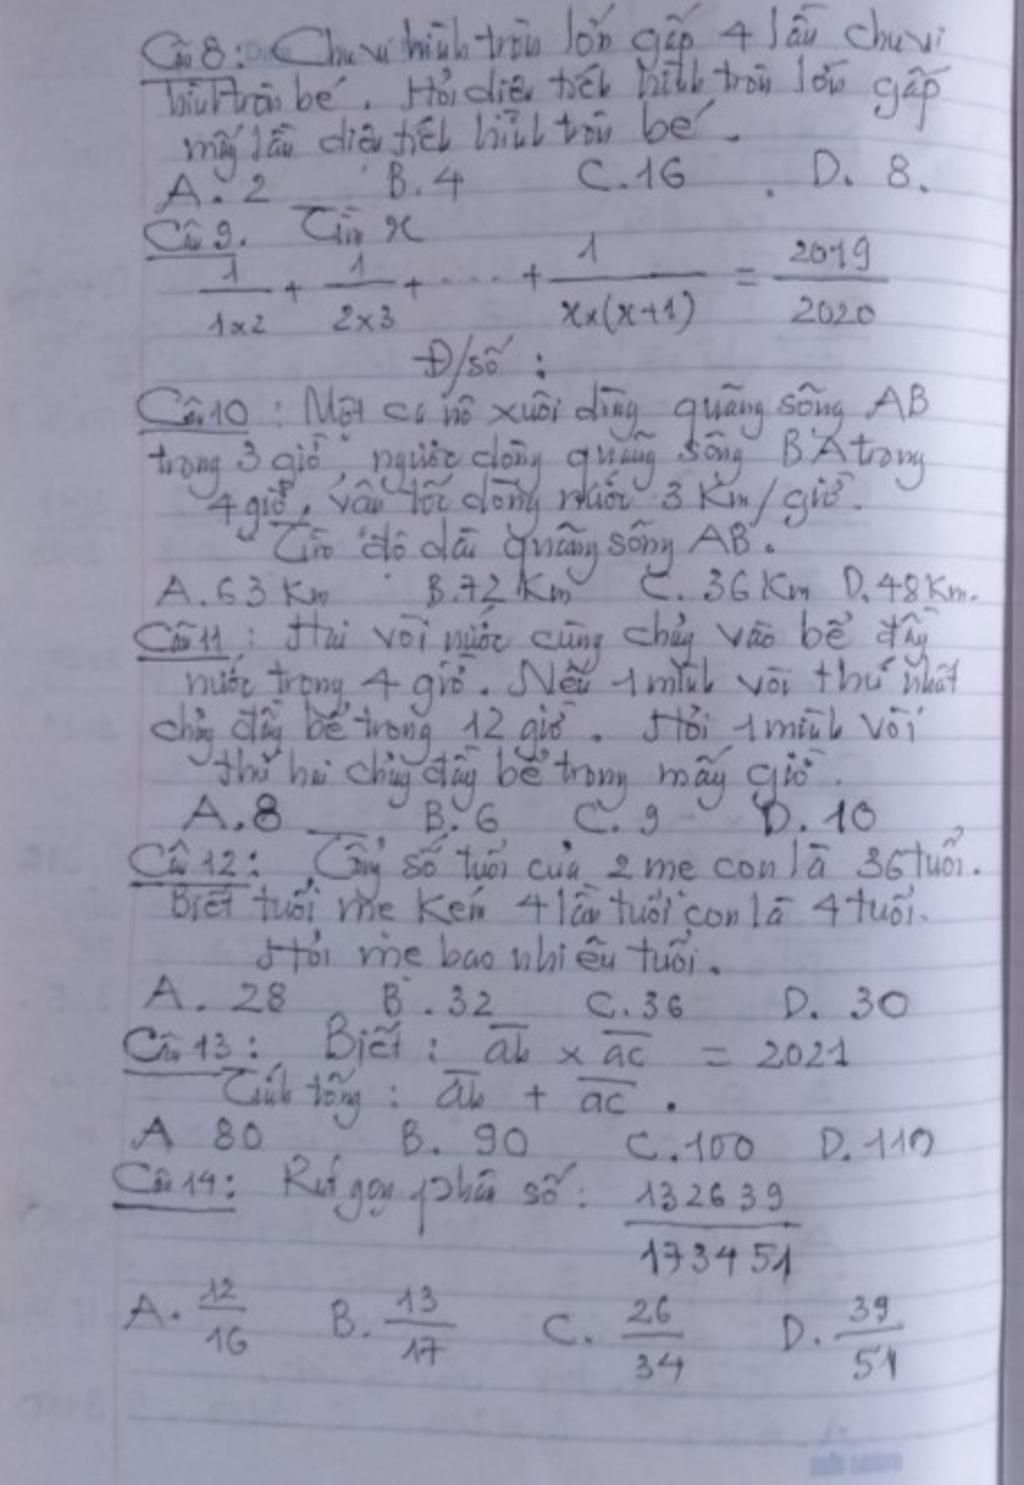 Câu 8: Chu vi hình tròn lớn gấp 4 lần chu vi
hình tròn bé. Hỏi diện tích hình tròn lớn gấp
mấy lần diện tích hình tròn bé.
A. 2 B. 4 C. 16 D. 8.
Câu 9. Tìm x
1/1x2 + 1/2x3 + ..... + 1/x x (x+1) = 2019/2020
Đ/số :
Câu 10 : Một ca nô xuôi dòng quãng sông AB
trong 3 giờ, ngược dòng quãng sông BA trong
4 giờ, vận tốc dòng nước 3 Km/giờ.
Tìm độ dài quãng sông AB.
A. 63 Km B. 72 Km C. 36 Km D. 48 Km.
Câu 11 : Hai vòi nước cùng chảy vào bể đầy
nước trong 4 giờ. Nếu 1 mình vòi thứ nhất
chảy đầy bể trong 12 giờ. Hỏi 1 mình vòi
thứ hai chảy đầy bể trong mấy giờ.
A. 8 B. 6 C. 9 D. 10
Câu 12 : Tổng số tuổi của 2 mẹ con là 36 tuổi.
Biết tuổi mẹ kém 4 lần tuổi con là 4 tuổi.
Hỏi mẹ bao nhiêu tuổi.
A. 28 B. 32 C. 36 D. 30
Câu 13 : Biết : ab x ac = 2021
Tính tổng : ab + ac .
A 80 B. 90 C. 100 D. 110
Câu 14 : Rút gọn phân số : 132639/173451
A. 12/16 B. 13/17 C. 26/34 D. 39/51